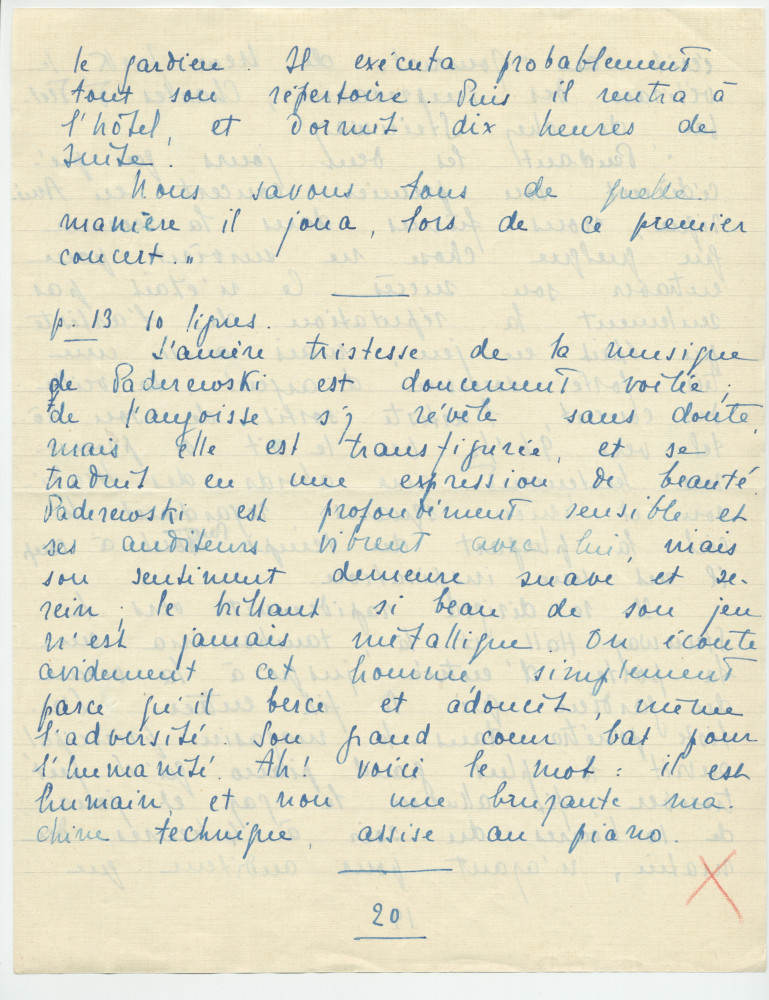 le gardien. Il exécuta probablement
tout son répertoire. Puis il rentra à
l'hôtel, et dormit dix heures de
suite!
Nous savons tous de quelle
manière il joua, lors de ce premier
concert..."
p. 13 10 lignes.
L'amère tristesse de la musique
de Paderewski est doucement voilée;
de l'angoisse s'y révèle sans doute,
mais elle est transfigurée, et se
traduit en une expression de beauté.
Paderewski est profondément sensible et
ses auditeurs vibrent avec lui, mais
son sentiment demeure suave et se-
rein; le brillant si beau de son jeu
n'est jamais métallique. On écoute
avidement cet homme, simplement
parce qu'il berce et adoucit, même
l'adversité. Son grand coeur bat pour
l'humanité. Ah! voici le mot: il est
humain, et non une bruyante ma-
chine technique, assise au piano.
20